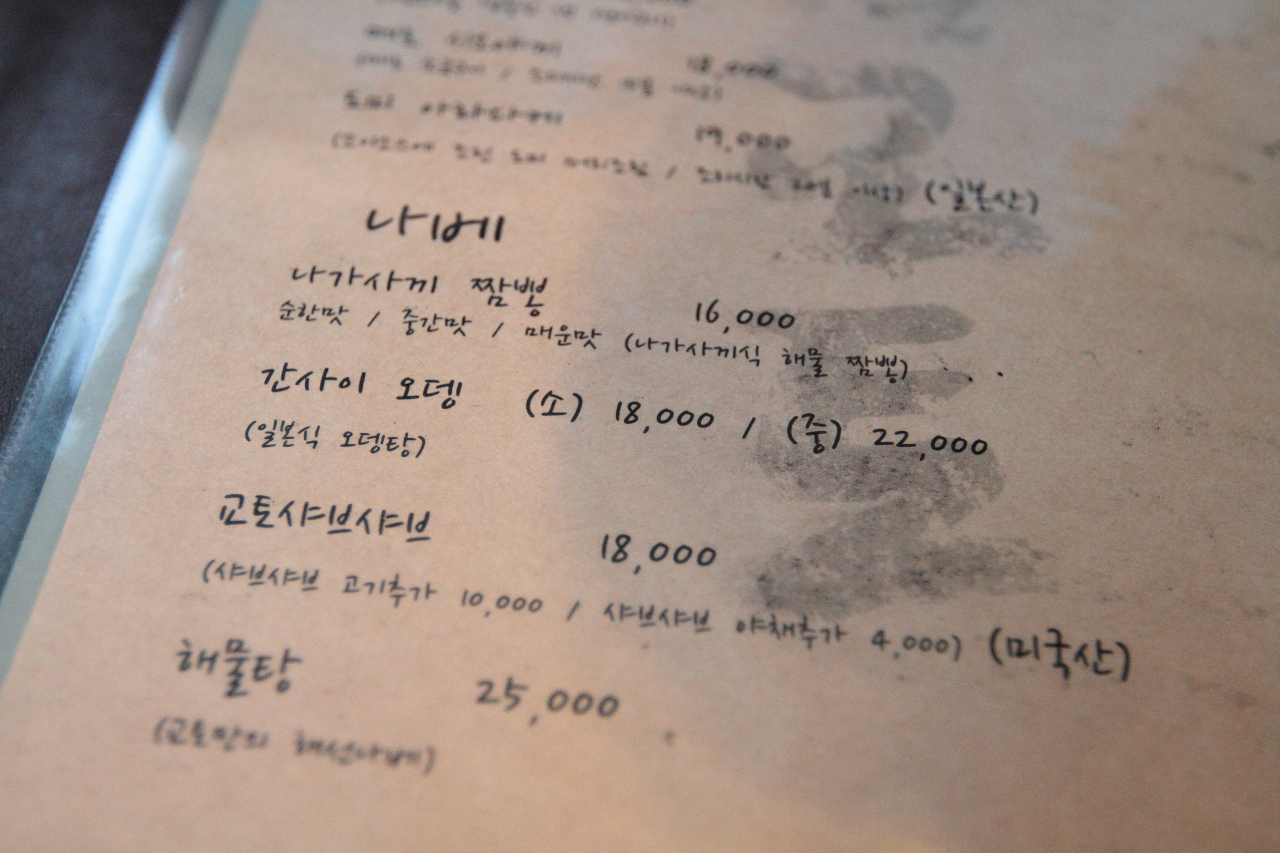 18,000
도미 아라다께 19,000
(일본산)
나베
나가사끼 짬뽕 16,000
순한맛 / 중간맛 / 매운맛 (나가사끼식 해물 짬뽕)
간사이 오뎅 (소) 18,000 / (중) 22,000
(일본식 오뎅탕)
교토샤브샤브 18,000
(샤브샤브 고기추가 10,000 / 샤브샤브 야채추가 4,000) (미국산)
해물탕 25,000
(교토만의 해선나베)